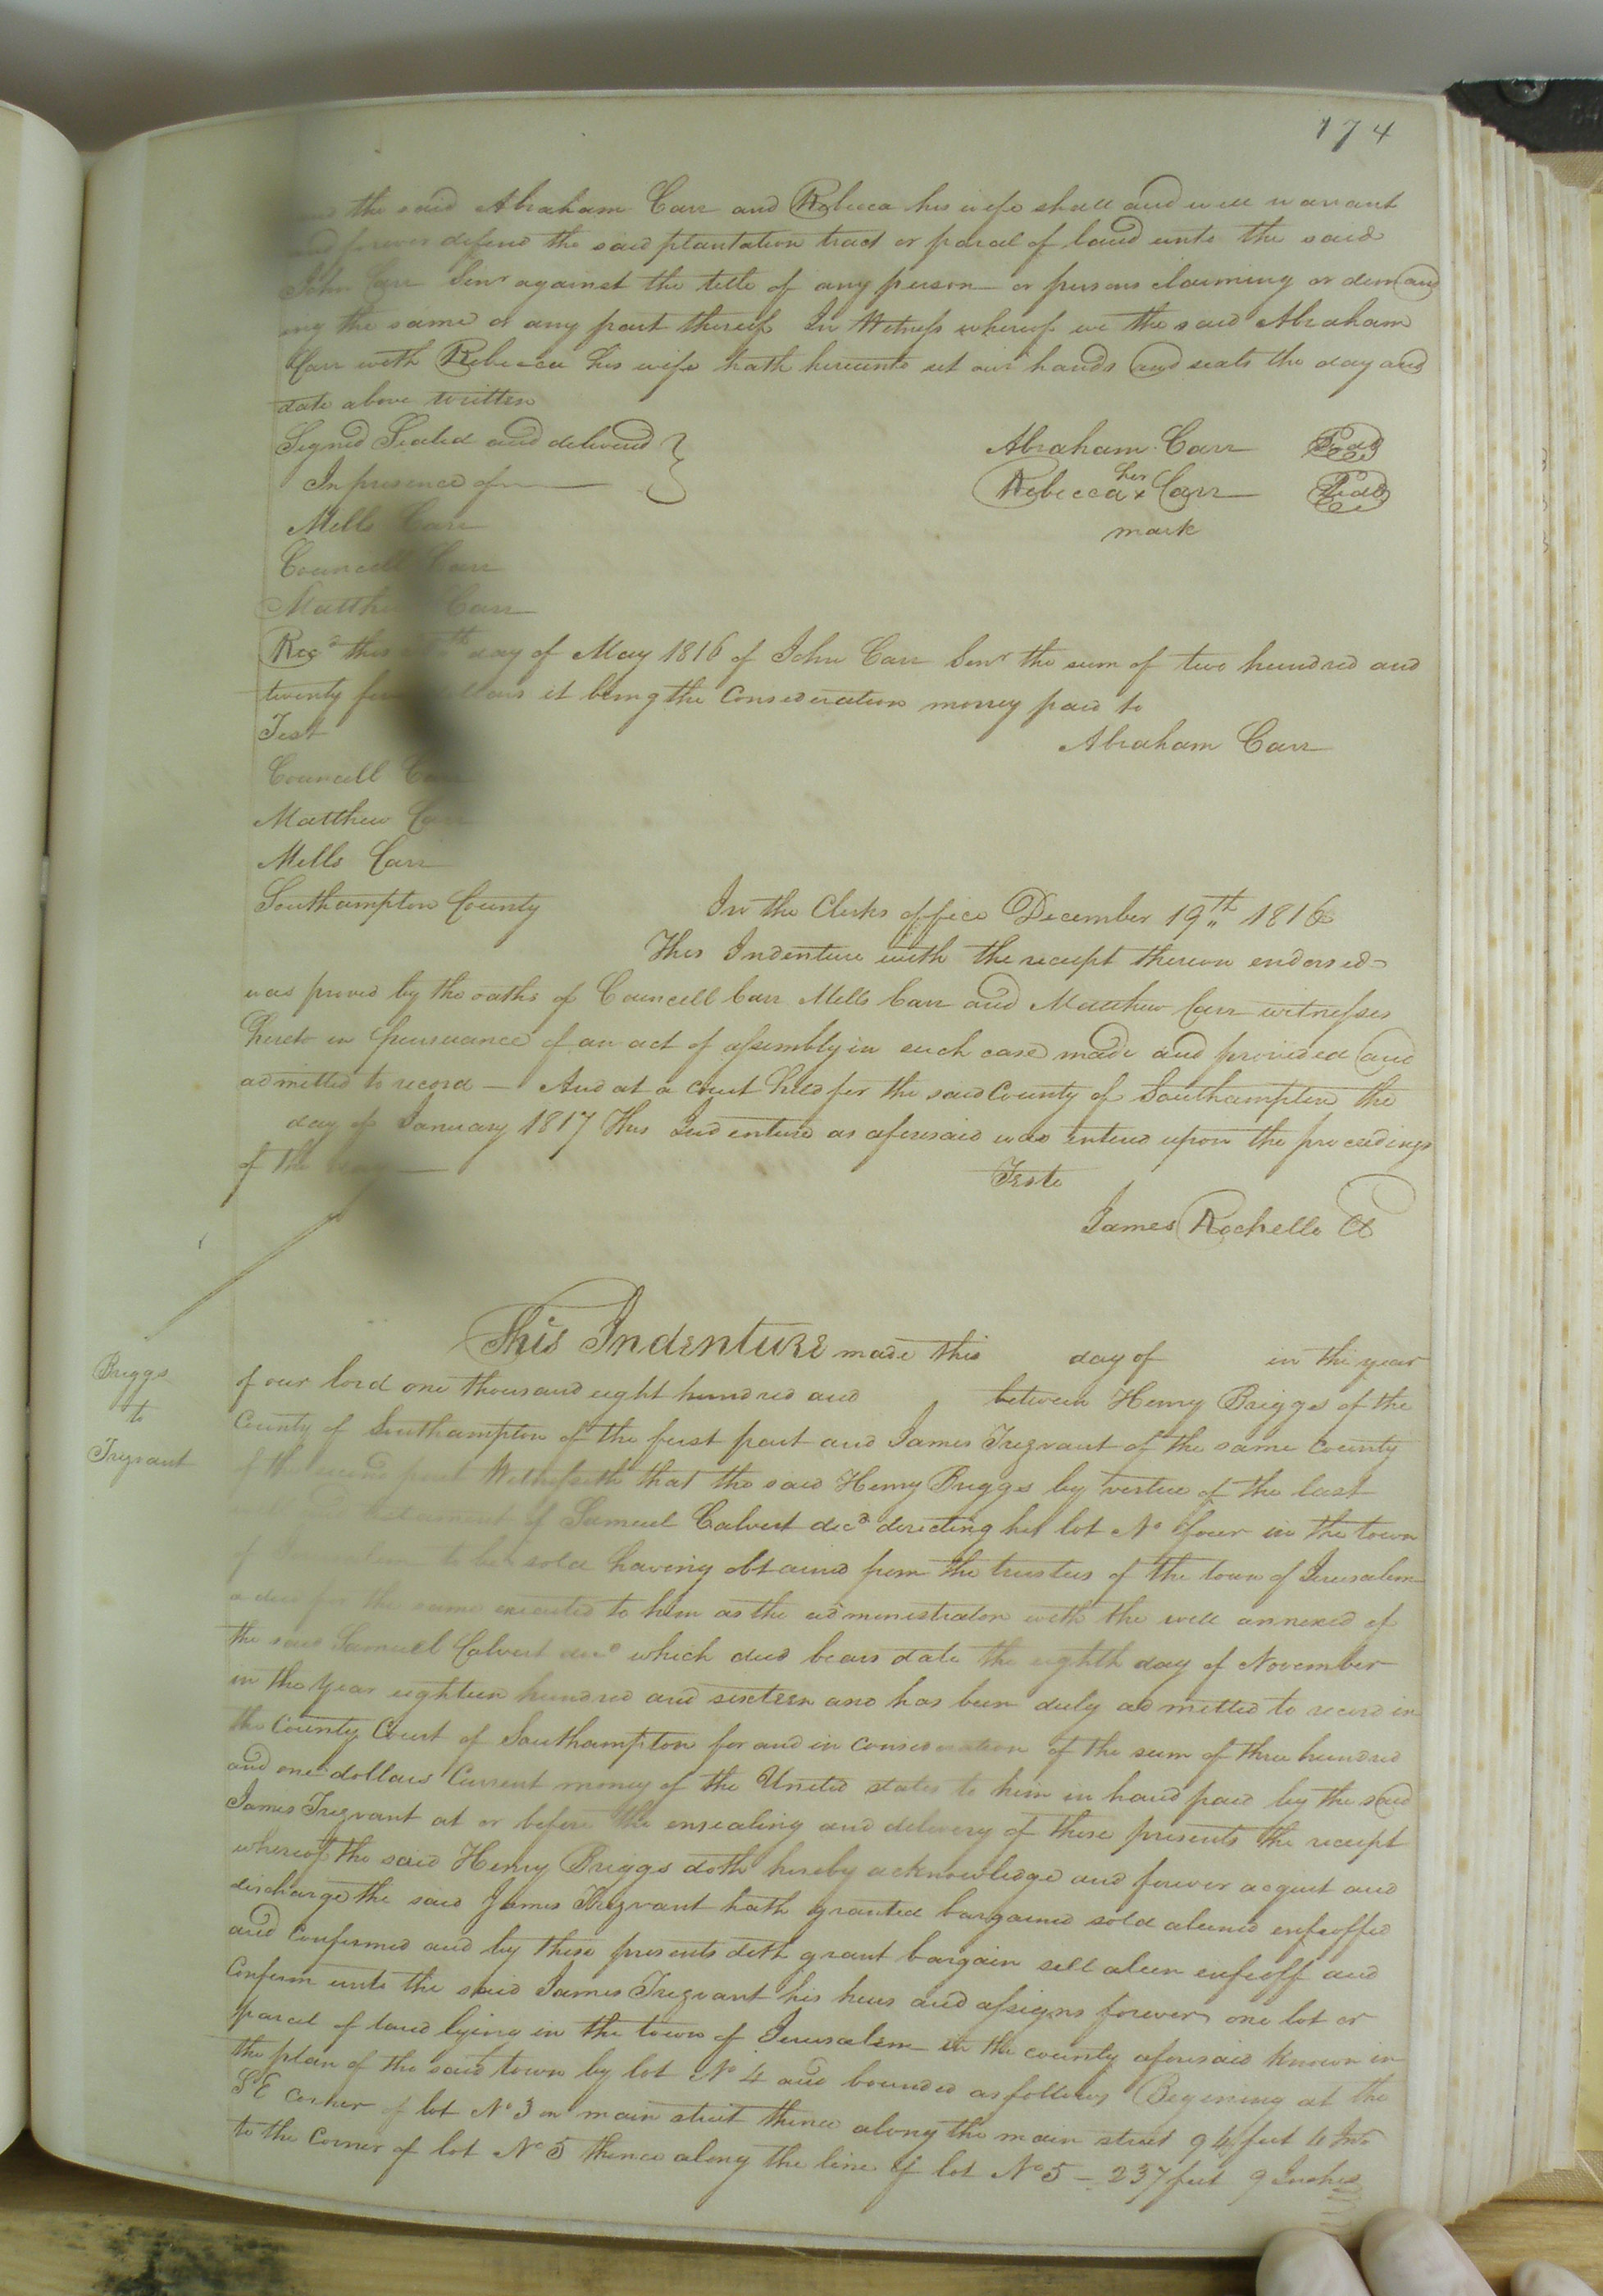 174
the said Abraham Carr and Rebecca his wife shall and will warrant
and forever defend the said plantation tract or parcel of land unto the said
John Carr Senr against the title of any person or persons claiming or demand
ing the same or any part thereof In Witness whereof we the said Abraham
Carr with Rebecca his wife hath hereunto set our hands and seals the day and
date above written
Signed Sealed and delivered Abraham Carr Seal
In presence of Rebecca her x Carr Seal
Mills Carr mark
Councell Carr
Matthew Carr
Recd this day of May 1816 of John Carr Senr the sum of two hundred and
twenty dollars it being the Consideration money paid to
Test Abraham Carr
Councell Carr
Matthew Carr
Mills Carr
Southampton County In the Clerks office December 19th 1816
This Indenture with the receipt thereon endorsed
was proved by the oaths of Councell Carr Mills Carr and Matthew Carr witnesses
hereto in pursuance of an act of assembly in such case made and provided and
admitted to record — And at a court held for the said County of Southampton the
day of January 1817 This Indenture as aforesaid was entered upon the proceedings
of the
Teste
James Rochelle Cl
This Indenture made this day of in the year
of our lord one thousand eight hundred and between Henry Briggs of the
Briggs
to
Trezvant
County of Southampton of the first part and James Trezvant of the same county
of the second part Witnesseth that the said Henry Briggs by vertue of the last
testament of Samuel Calvert decd directing his lot No four in the town
of Jerusalem to be sold having obtained from the trustees of the town of Jerusalem
a deed for the same executed to him as the administrator with the will annexed of
the said Samuel Calvert decd which deed bears date the eighth day of November
in the year eighteen hundred and sixteen and has been duly admitted to record in
the County Court of Southampton for and in consideration of the sum of three hundred
and one dollars Current money of the United states to him in hand paid by the said
James Trezvant at or before the ensealing and delivery of these presents the receipt
whereof the said Henry Briggs doth hereby acknowledge and forever acquit and
discharge the said James Trezvant hath granted bargained sold aliened enfeoffed
and confirmed and by these presents doth grant bargain sell alien enfeoff and
Confirm unto the said James Trezvant his heirs and assigns forever one lot or
parcel of land lying in the town of Jerusalem in the county aforesaid known in
the plan of the said town by lot No 4 and bounded as follows Begining at the
S E Corner of lot No 3 on main street thence along the main street 94 feet 4 Ins
to the Corner of lot No 5 thence along the line of lot No 5 — 237 feet 9 Inches